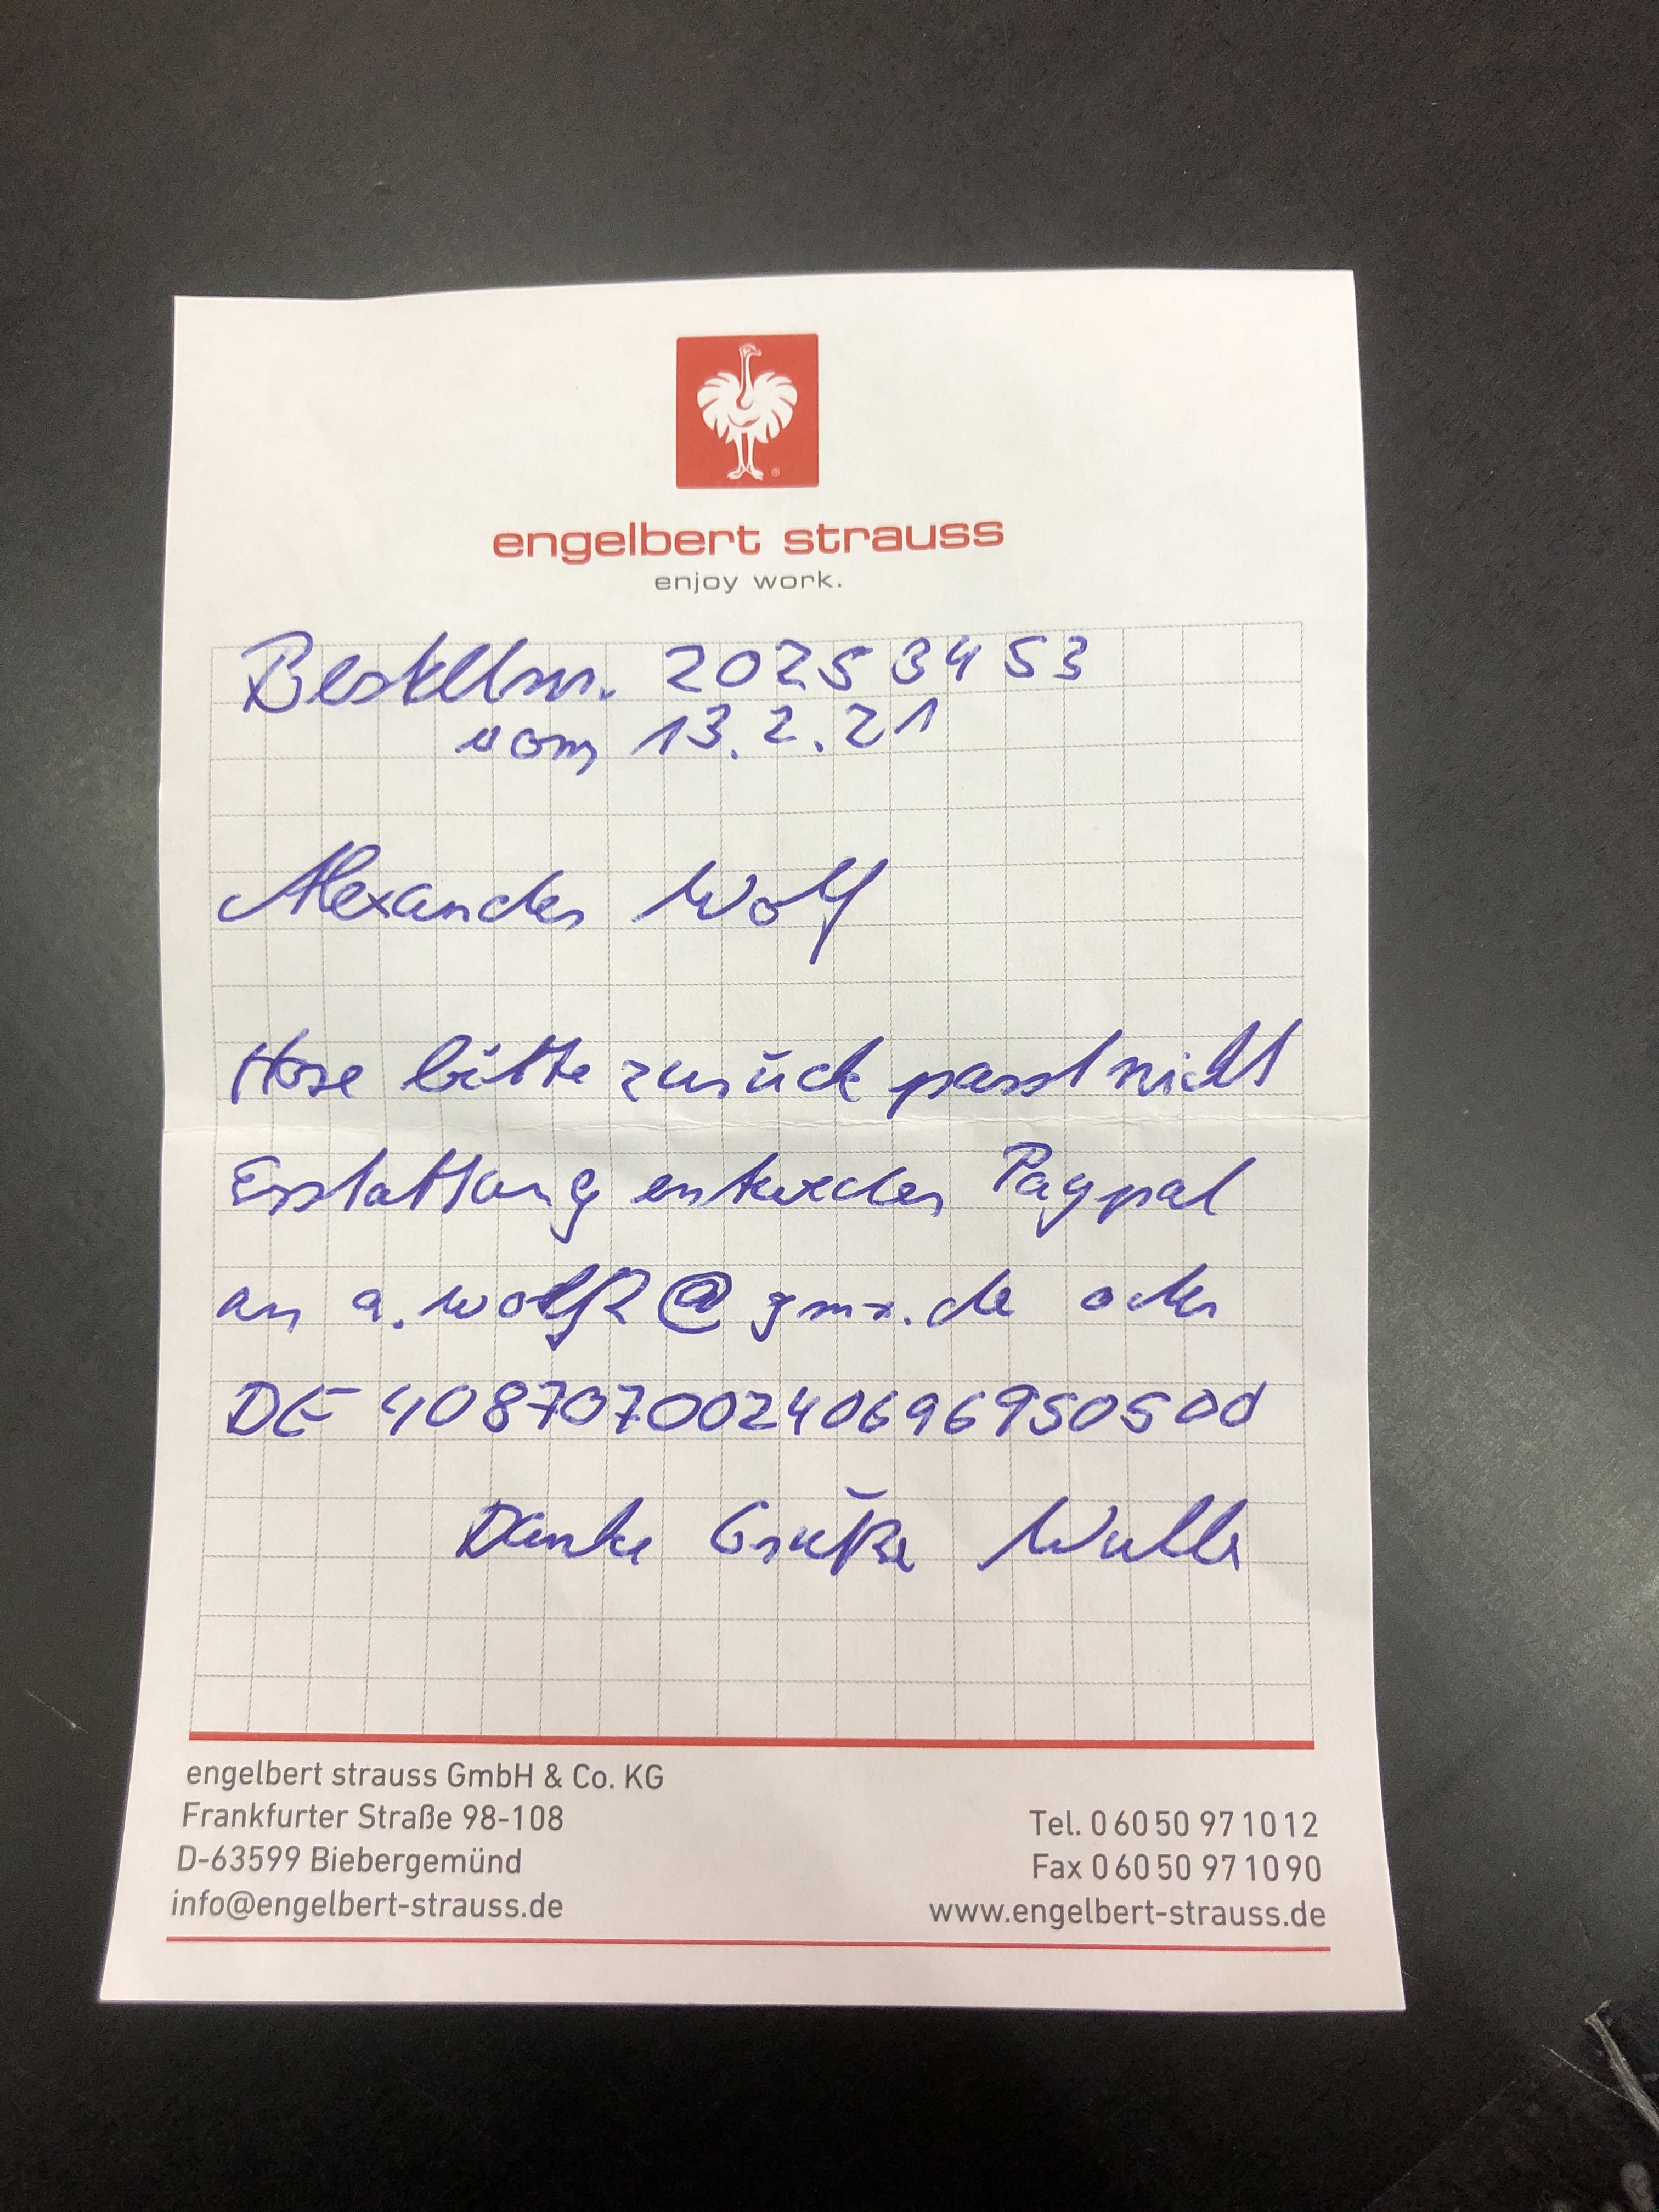 engelbert strauss
enjoy work.
Bestellnr. 20253453
vom 13.2.21
Alexander Wolf
Hose bitte zurück passt nicht
Erstattung entweder Paypal
an a. @gmx.de oder
DE 40870700240696950500
Danke Grüße
engelbert strauss GmbH & Co. KG
Frankfurter Straße 98-108
D-63599 Biebergemünd
info@engelbert-strauss.de
Tel. 0 60 50 97 10 12
Fax 0 60 50 97 10 90
www.engelbert-strauss.de